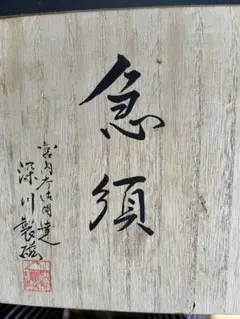 急須
宮内庁御用達
深川製磁